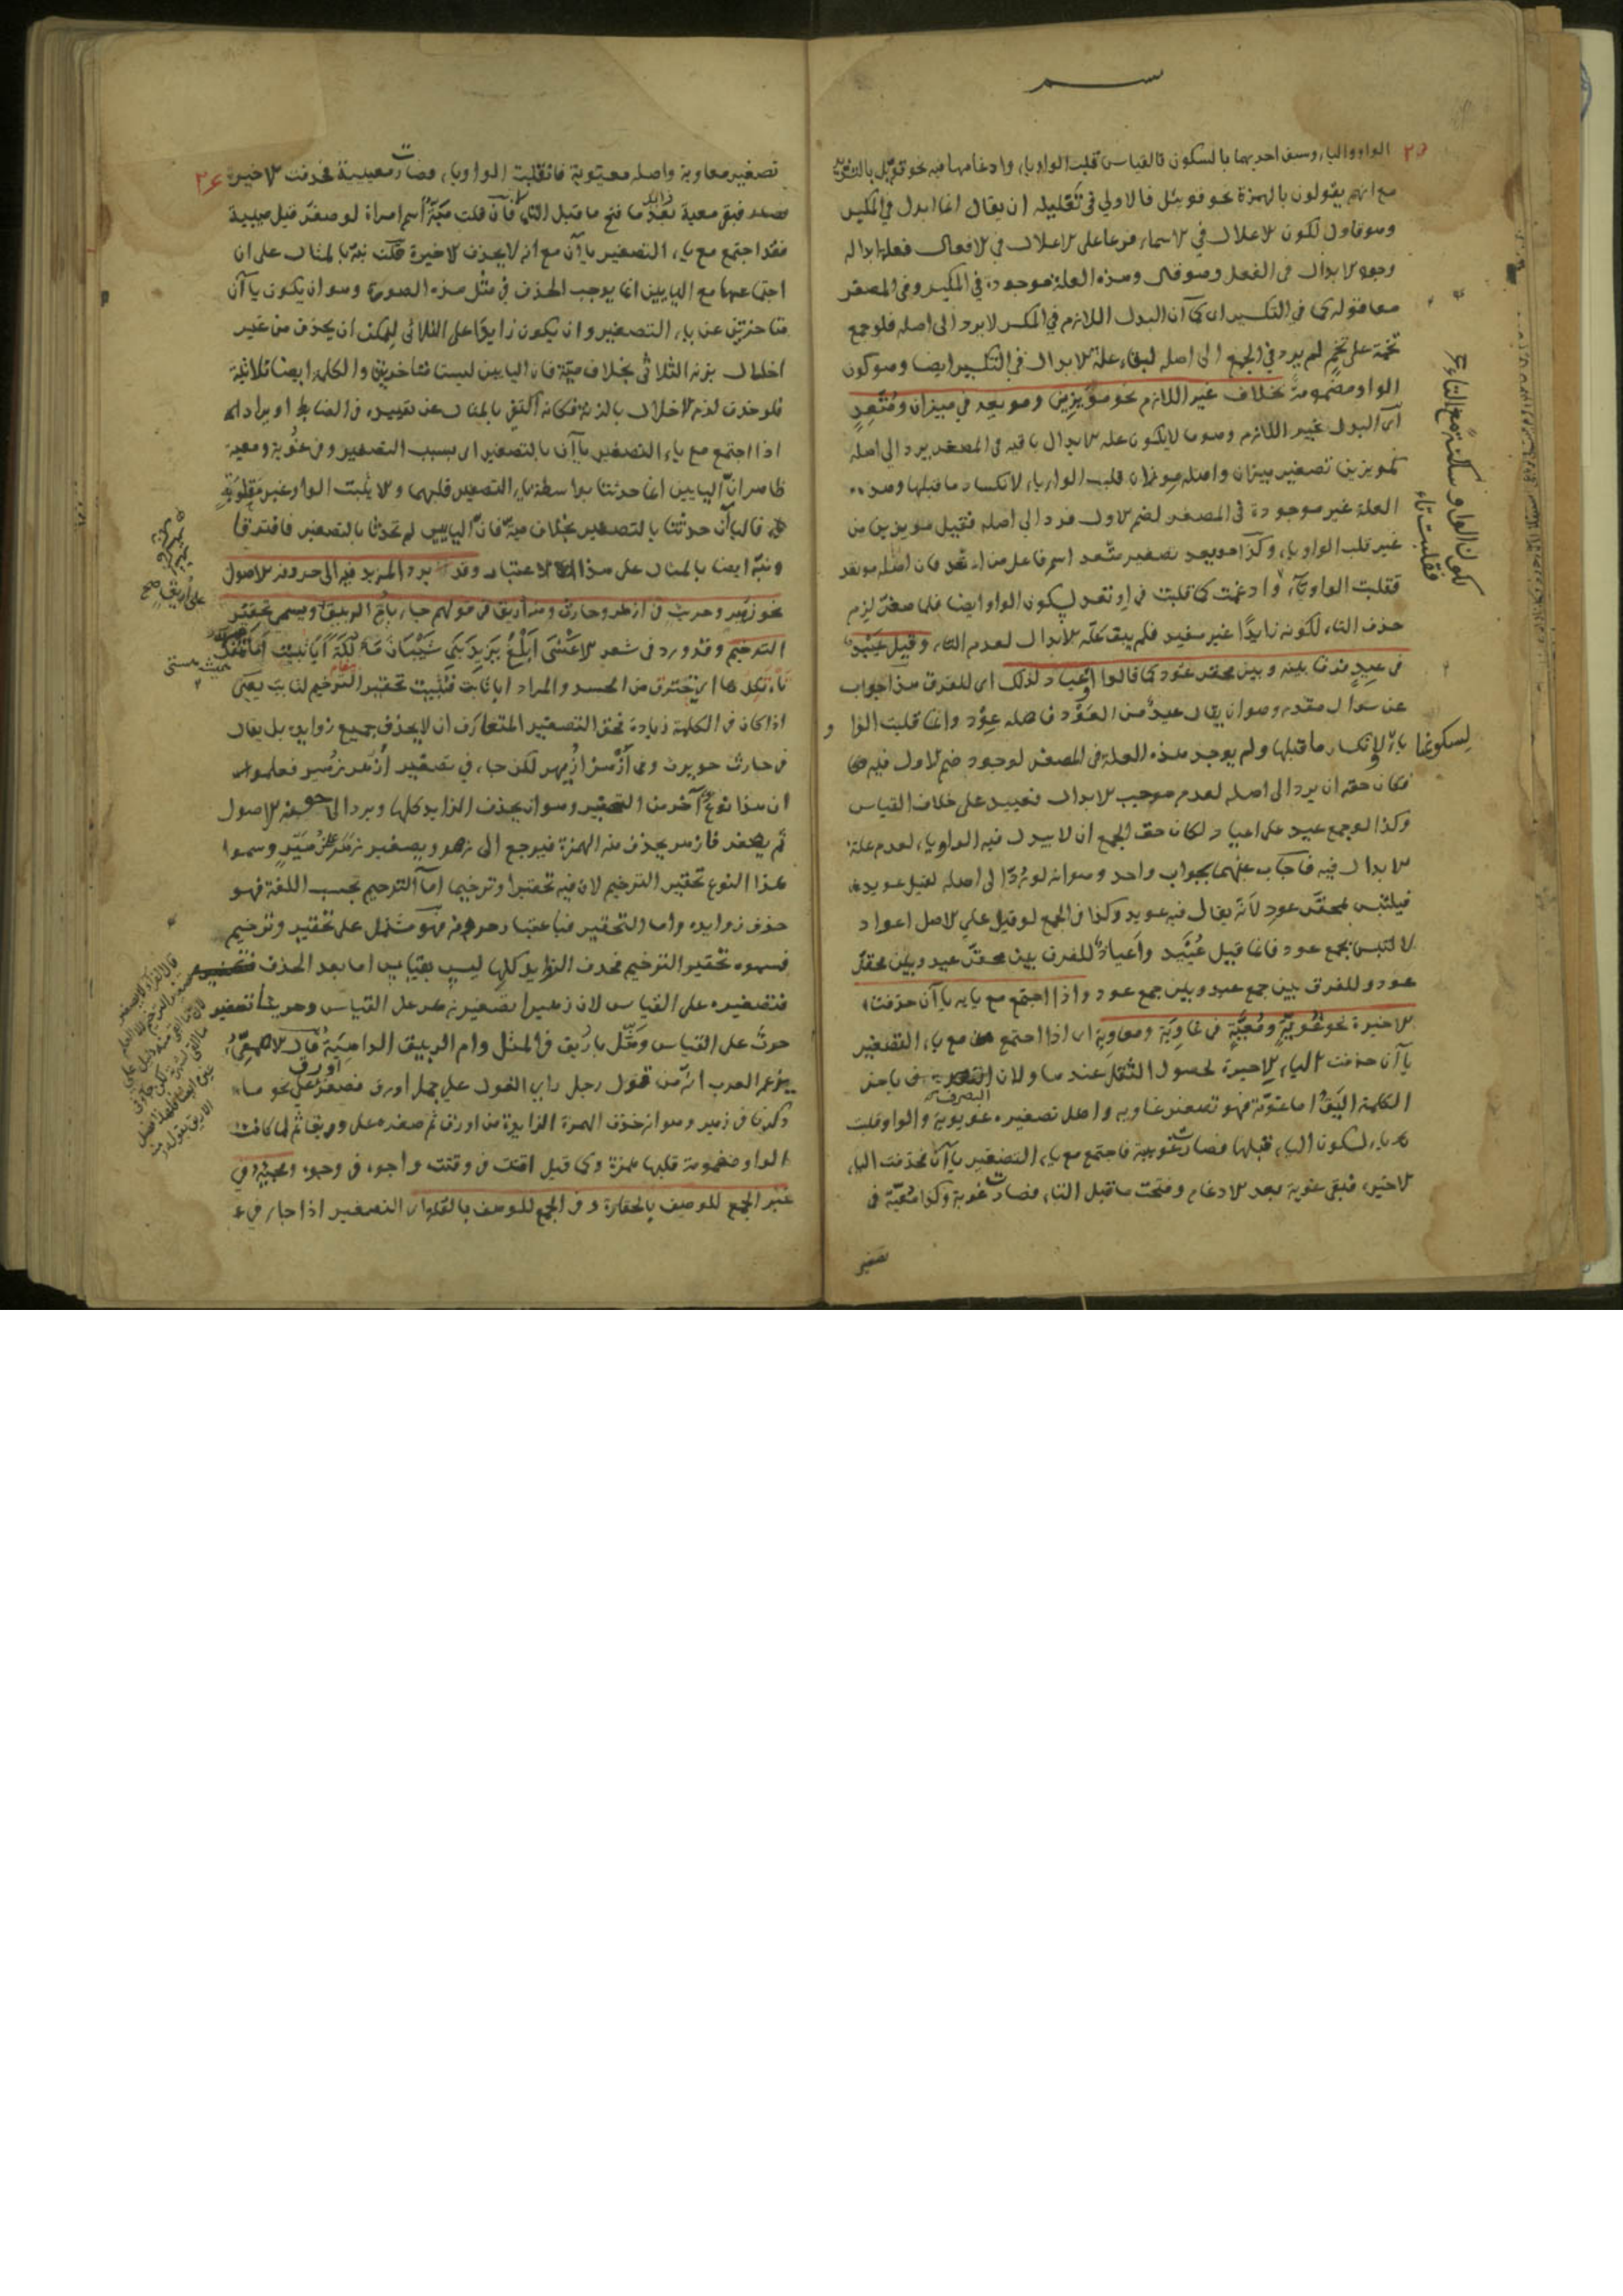 ٢٥
الواو والياء وسبق احديهما بالسكون فالقياس قلب الواو ياء وادغامها فيه نحو
مع انهم يقولون بالهمزة نحو قويئل فالاولى في تعليله ان يقال انما ابدل في المكبر
وهو قاول لكون الاعلال في الاسماء فرعا على الاعلال في الافعال فعلة ابداله
وجود الابدال في الفعل وهو قال وهذه العلة موجودة في المكبر وفي المصغر
معا قوله في التكسير اي كما ان البدل اللازم في المكبر لا يرد الى اصله فلو جمع
تخمة على تخم لم يرد في الجمع الى اصله لبقاء علة الابدال في التكسير ايضا وهو كون
الواو مضمومة بخلاف غير اللازم نحو مُوَيْزِين ومويعد في ميزان ومُتَّعِدٍ
اي البدل غير اللازم وهو ما لا يكون علة الابدال باقية في المصغر يرد الى اصله
كمويزين تصغير ميزان واصله موزان قلبت الواو ياء لانكسار ما قبلها وهذه
العلة غير موجودة في المصغر لضم الاول فرد الى اصله فقيل مويزين من
غير قلب الواو ياء وكذا مويعد تصغير متعد اسم فاعل من اتعد فان اصله موتعد
فقلبت الواو تاء وادغمت كما قلبت في اوتعد لسكون الواو ايضا فلما صغر لزم
حذف التاء لكونه زايدًا غير مفيد فلم يبق علة الابدال لعدم التاء وقيل عُيَيْد
في عيدٍ فرقا بينه وبين محقر عود كما قالوا اعياد لذلك اي للفرق هذا جواب
عن سؤال مقدر وهو ان يقال عيد من العود فاصله عِوْد وانما قلبت الواو
ياء لسكونها وانكسار ما قبلها ولم يوجد هذه العلة في المصغر لوجود ضم الاول فيه
فكان حقه ان يرد الى اصله لعدم موجب الابدال فعييد على خلاف القياس
وكذا لو جمع عيد على اعياد لكان حق الجمع ان لا يبدل فيه الواو ياء لعدم علة
الابدال فيه فاجاب عنهما بجواب واحد وهو انه لو رُدّ الى اصله لقيل عويد
فيلتبس بمحقر عود لانه يقال فيه عويد وكذا في الجمع لو قيل على الاصل اعواد
لالتبس بجمع عود فانما قيل عُيَيْد واعياد للفرق بين محقر عيد وبين محقر
عود وللفرق بين جمع عيد وبين جمع عود واذا اجتمع مع يايه ياآن حذفت
الاخيرة نحو غُوَيّة ومُعَيّة في غاوِيَة ومعاوِية اي اذا اجتمع مع ياء التصغير
ياآن حذفت الياء الاخيرة لحصول الثقل عندها ولان التصرف في ياخر
الكلمة اليق اما غوية فهو تصغير غاوية واصل تصغيره غويوية والواو قلبت
ياء لسكون الياء قبلها فصارت غوييية فاجتمع مع ياء التصغير ياآن فحذفت الياء
الاخيرة فبقى غوية بعد الادغام وفتحت ما قبل التاء فصارت غوية وكذا مُعَيّة في
تصغير
لكون الواو ساكنة مع التاء
فقلبت تاء
٢٦
تصغير معاوية واصله معيوية فانقلبت الواو ياء فصارت معييية فحذفت الاخيرة
فبقى معية بعد ما فتح ما قبل التاء فان قلت مَيّة اسم امراة لو صغر قيل مييية
فقد اجتمع مع ياء التصغير ياآن مع انه لا يحذف الاخيرة قلت نبه بالمثال على ان
اجتماعها مع اليايين انما يوجب الحذف في مثل هذه الصورة وهو ان يكون ياآن
متاخرتين عن ياء التصغير وان يكون زايدا على الثلاثي ليمكن ان يحذف من غير
اخلال بزنة الثلاثي بخلاف مية فان اليايين ليستا متاخرتين والكلمة ايضا ثلاثية
فلو حذف لزم الاخلال بالزنة فكانه اكتفى بالمثال عن تقييده في الضابط او يراد انه
اذا اجتمع مع ياء التصغير ياآن بالتصغير اي بسبب التصغير وفي غوية ومعية
ظاهر ان اليايين انما حدثتا بواسطة ياء التصغير قبلهما والا يثبت الواو غير مقلوبة
فالياآن حدثتا بالتصغير بخلاف مية فان اليايين لم تحدثا بالتصغير فافترقا
ونبه ايضا بالمثال على هذا الاعتبار وقد يرد المزيد فيه الى حروفه الاصول
نحو زهير وحريث في ازهر وحارث ومنه اريق في قولهم جاء بام الربيق ويسمى تحقير
الترخيم وقد ورد في شعر الاعشى اَبْلِغْ يَزِيدَ بَنِي شَيْبَانَ مَأْلُكَةً اَبَا ثُبَيْتٍ اَمَا تَنْفَكُّ
تأتكل اي تحترق من الحسد والمراد ابا ثابت فثُبَيت تحقير الترخيم لثابت يعني
اذا كان في الكلمة زيادة فحق التصغير المتعارف ان لا يحذف جميع زوايده بل يقال
في حارث حويرث وفي ازهر ازيهر لكن جاء في تصغير ازهر زهير فعلموا
ان هذا نوع آخر من التصغير وهو ان يحذف الزوايد كلها ويرد الى حروفه الاصول
ثم يصغر فازهر يحذف منه الهمزة فيرجع الى زهر ويصغر زهر على زُهَيْر وسموا
هذا النوع تحقير الترخيم لان فيه تحقيرا وترخيما اما الترخيم بحسب اللغة فهو
حذف زوايده واما التحقير فباعتبار حروفه فهو مشتمل على تحقير وترخيم
فسموه تحقير الترخيم فحذف الزوايد كلها ليس بقياس اما بعد الحذف
فتصغيره على القياس لان زهيرا تصغير زهر على القياس وحريثا تصغير
حرث على القياس ومثّل باريق في المثل وام الربيق الداهية قال الاصمعي
يزعم العرب انه من قول رجل راى الغول على جمل اورق فصغر اورق على نحو ما
ذكرنا في زهير وهو انه حذف الهمزة الزايدة من اورق ثم صغره على وريق ثم لما كانت
الواو مضمومة قلبها همزة كما قيل اقتت في وقتت واجوه في وجوه ومجيئه في
غير الجمع للوصف بالحقارة وفي الجمع للوصف بالقلة اي التصغير اذا جاء في